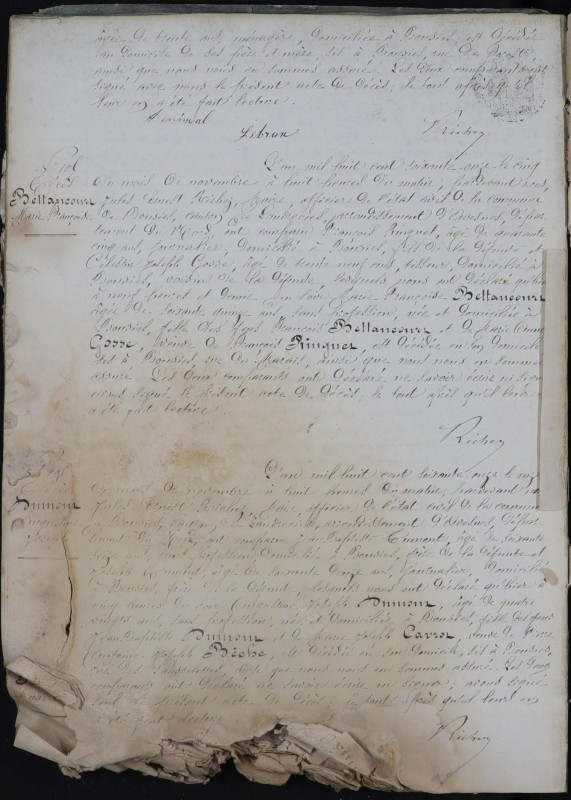 âgée de trente ans, ménagère, domiciliée à Bousies, est décédée
au domicile de ses père et mère, sis à Bousies, rue de
ainsi que nous nous en sommes assuré. Les deux comparants ont
signé avec nous le présent acte de décès, le tout après qu'il
leur en a été fait lecture.
Lebrun
Richez
Décès
Bettancourt
Marie Françoise
L'an mil huit cent soixante onze le cinq
du mois de novembre à huit heures du matin, pardevant nous,
Jules Ernest Richez, Maire, officier de l'état civil de la commune
de Bousies, canton de Landrecies, arrondissement d'Avesnes, dépar
tement du Nord, ont comparu François Ringuet, âgé de quarante
cinq ans, journalier domicilié à Bousies, fils de la défunte et
Célestin Joseph Gosse, âgé de trente neuf ans, tisseur domicilié à
Bousies, voisin de la défunte, lesquels nous ont déclaré qu'hier
à neuf heures et demie du soir Marie Françoise Bettancourt
âgée de soixante ans, sans profession, née et domiciliée à
Bousies, fille des feus François Bettancourt et de Marie Anne
Gosse, veuve de François Ringuet, est décédée en son domicile
sis à Bousies, rue du Marais, ainsi que nous nous en sommes
assuré. Les deux comparants ont déclaré ne savoir écrire ni signer
avons signé le présent acte de décès, le tout après qu'il leur
a été fait lecture.
Richez
L'an mil huit cent soixante onze le
Dumont
du mois de novembre à huit heures du matin, pardevant
Jules Ernest Richez, Maire, officier de l'état civil de la commune
de Bousies, canton de Landrecies, arrondissement d'Avesnes, dépar
tement du Nord, ont comparu Jean Baptiste Dumont, âgé de soixante
seize ans, sans profession domicilié à Bousies, frère de la défunte et
Joseph Dumont, âgé de soixante douze ans, journalier, domicilié
à Bousies, frère de la défunte, lesquels nous ont déclaré qu'hier à
cinq heures du soir Joseph Dumont, âgée de quatre
vingts ans sans profession, née et domiciliée à Bousies, fille des feus
Jean Baptiste Dumont et de Marie Joseph Carrez, veuve de Pierre
Antoine Joseph Bêche, est décédée en son domicile, sis à Bousies,
rue des ainsi que nous nous en sommes assuré. Les deux
comparants ont déclaré ne savoir écrire ni signer, avons signé
seul le présent acte de décès, le tout après qu'il leur en
a été fait lecture
Richez